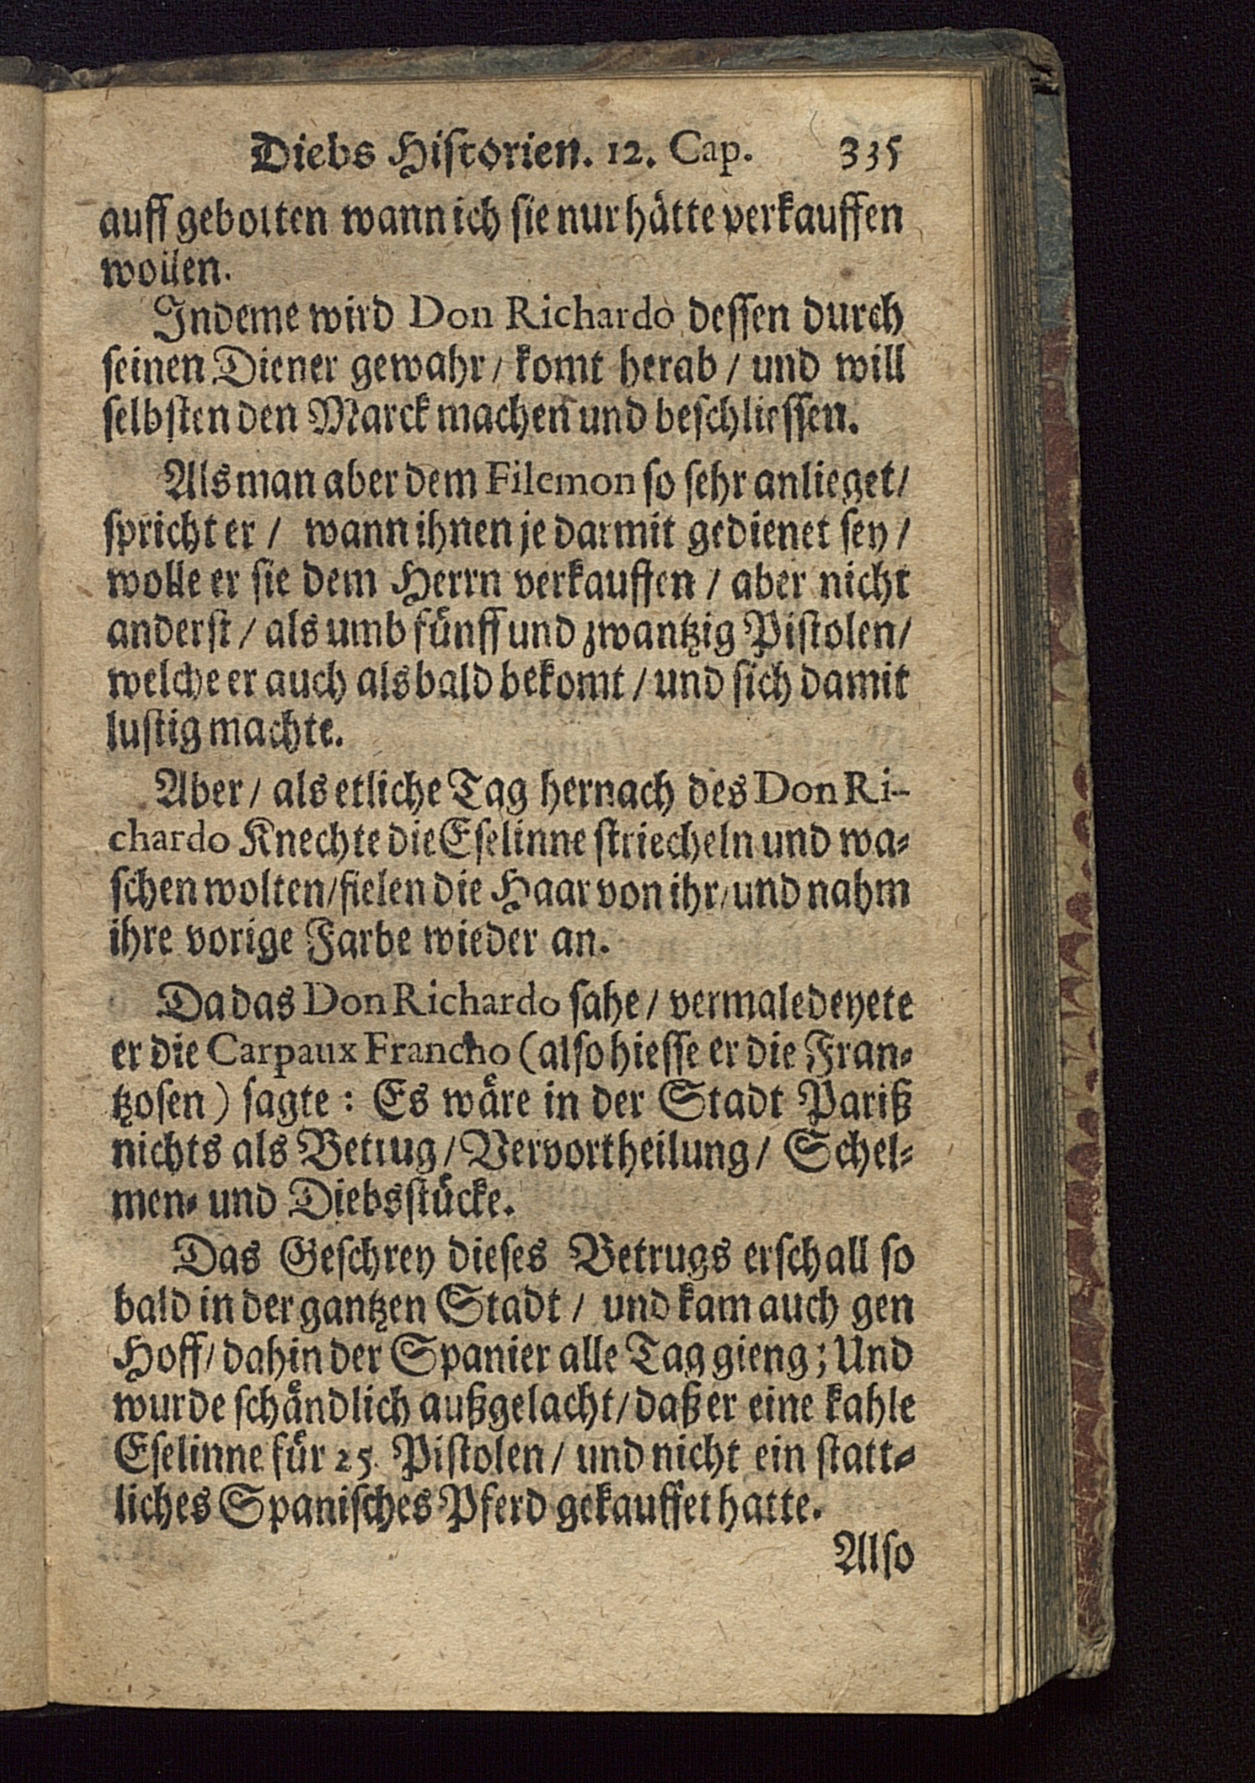 Diebs Historien. 12. Cap. 335
auff gebotten wann ich sie nur hätte verkauffen
wollen.
Indeme wird Don Richardo dessen durch
seinen Diener gewahr / komt herab / und will
selbsten den Marck machen und beschliessen.
Als man aber dem Filemon so sehr anlieget /
spricht er / wann ihnen je darmit gedienet sey /
wolle er sie dem Herrn verkauffen / aber nicht
anderst / als umb fünff und zwantzig Pistolen /
welche er auch alsbald bekomt / und sich damit
lustig machte.
Aber / als etliche Tag hernach des Don Ri-
chardo Knechte die Eselinne striecheln und wa-
schen wolten / fielen die Haar von ihr / und nahm
ihre vorige Farbe wieder an.
Da das Don Richardo sahe / vermaledeyete
er die Carpaux Francho (also hiesse er die Fran-
tzosen) sagte : Es wäre in der Stadt Pariß
nichts als Betrug / Vervortheilung / Schel-
men- und Diebsstücke.
Das Geschrey dieses Betrugs erschall so
bald in der gantzen Stadt / und kam auch gen
Hoff / dahin der Spanier alle Tag gieng; Und
wurde schändlich außgelacht / daß er eine kahle
Eselinne für 25. Pistolen / und nicht ein statt-
liches Spanisches Pferd gekauffet hatte.
Also